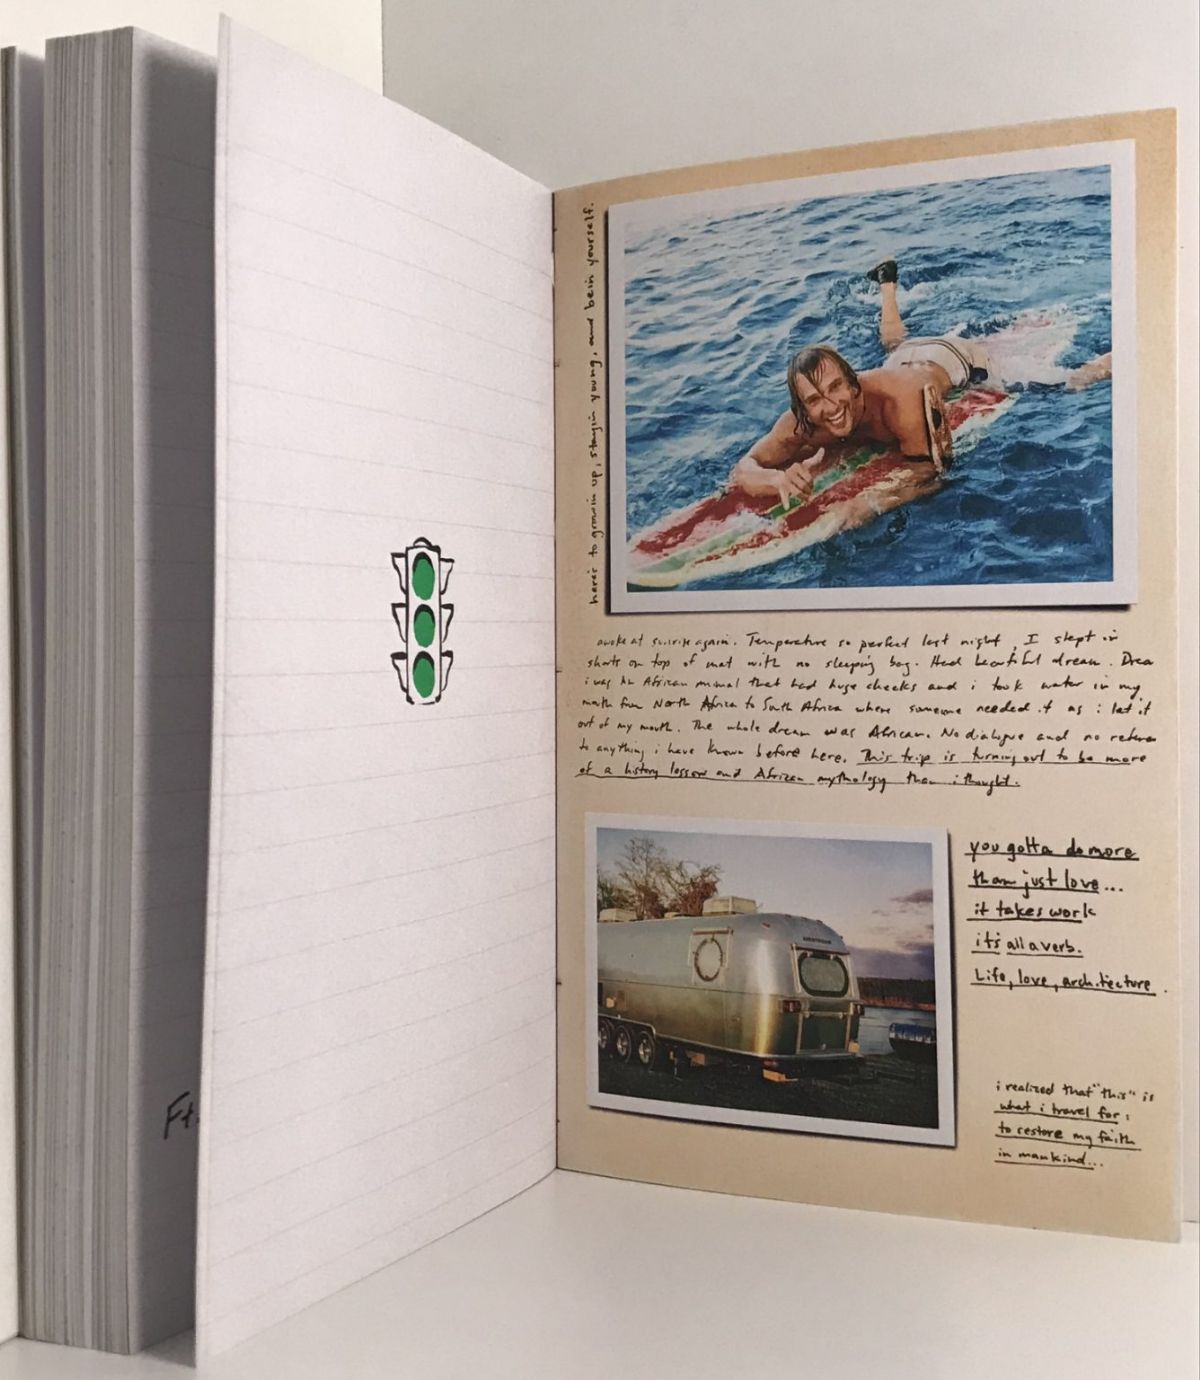 here's to growin up, stayin young, and bein yourself.
awoke at sunrise again. Temperature so perfect last night, I slept in
shorts on top of mat with no sleeping bag. Had beautiful dream. Drea
i was an African animal that had huge cheeks and i took water in my
mouth from North Africa to South Africa where someone needed it as i let it
out of my mouth. The whole dream was African. No dialogue and no referen
to anything i have known before here. This trip is turning out to be more
of a history lesson and African mythology than i thought.
AIRSTREAM
you gotta do more
than just love...
it takes work
it's all a verb.
Life, love, architecture.
i realized that "this" is
what i travel for:
to restore my faith
in mankind...